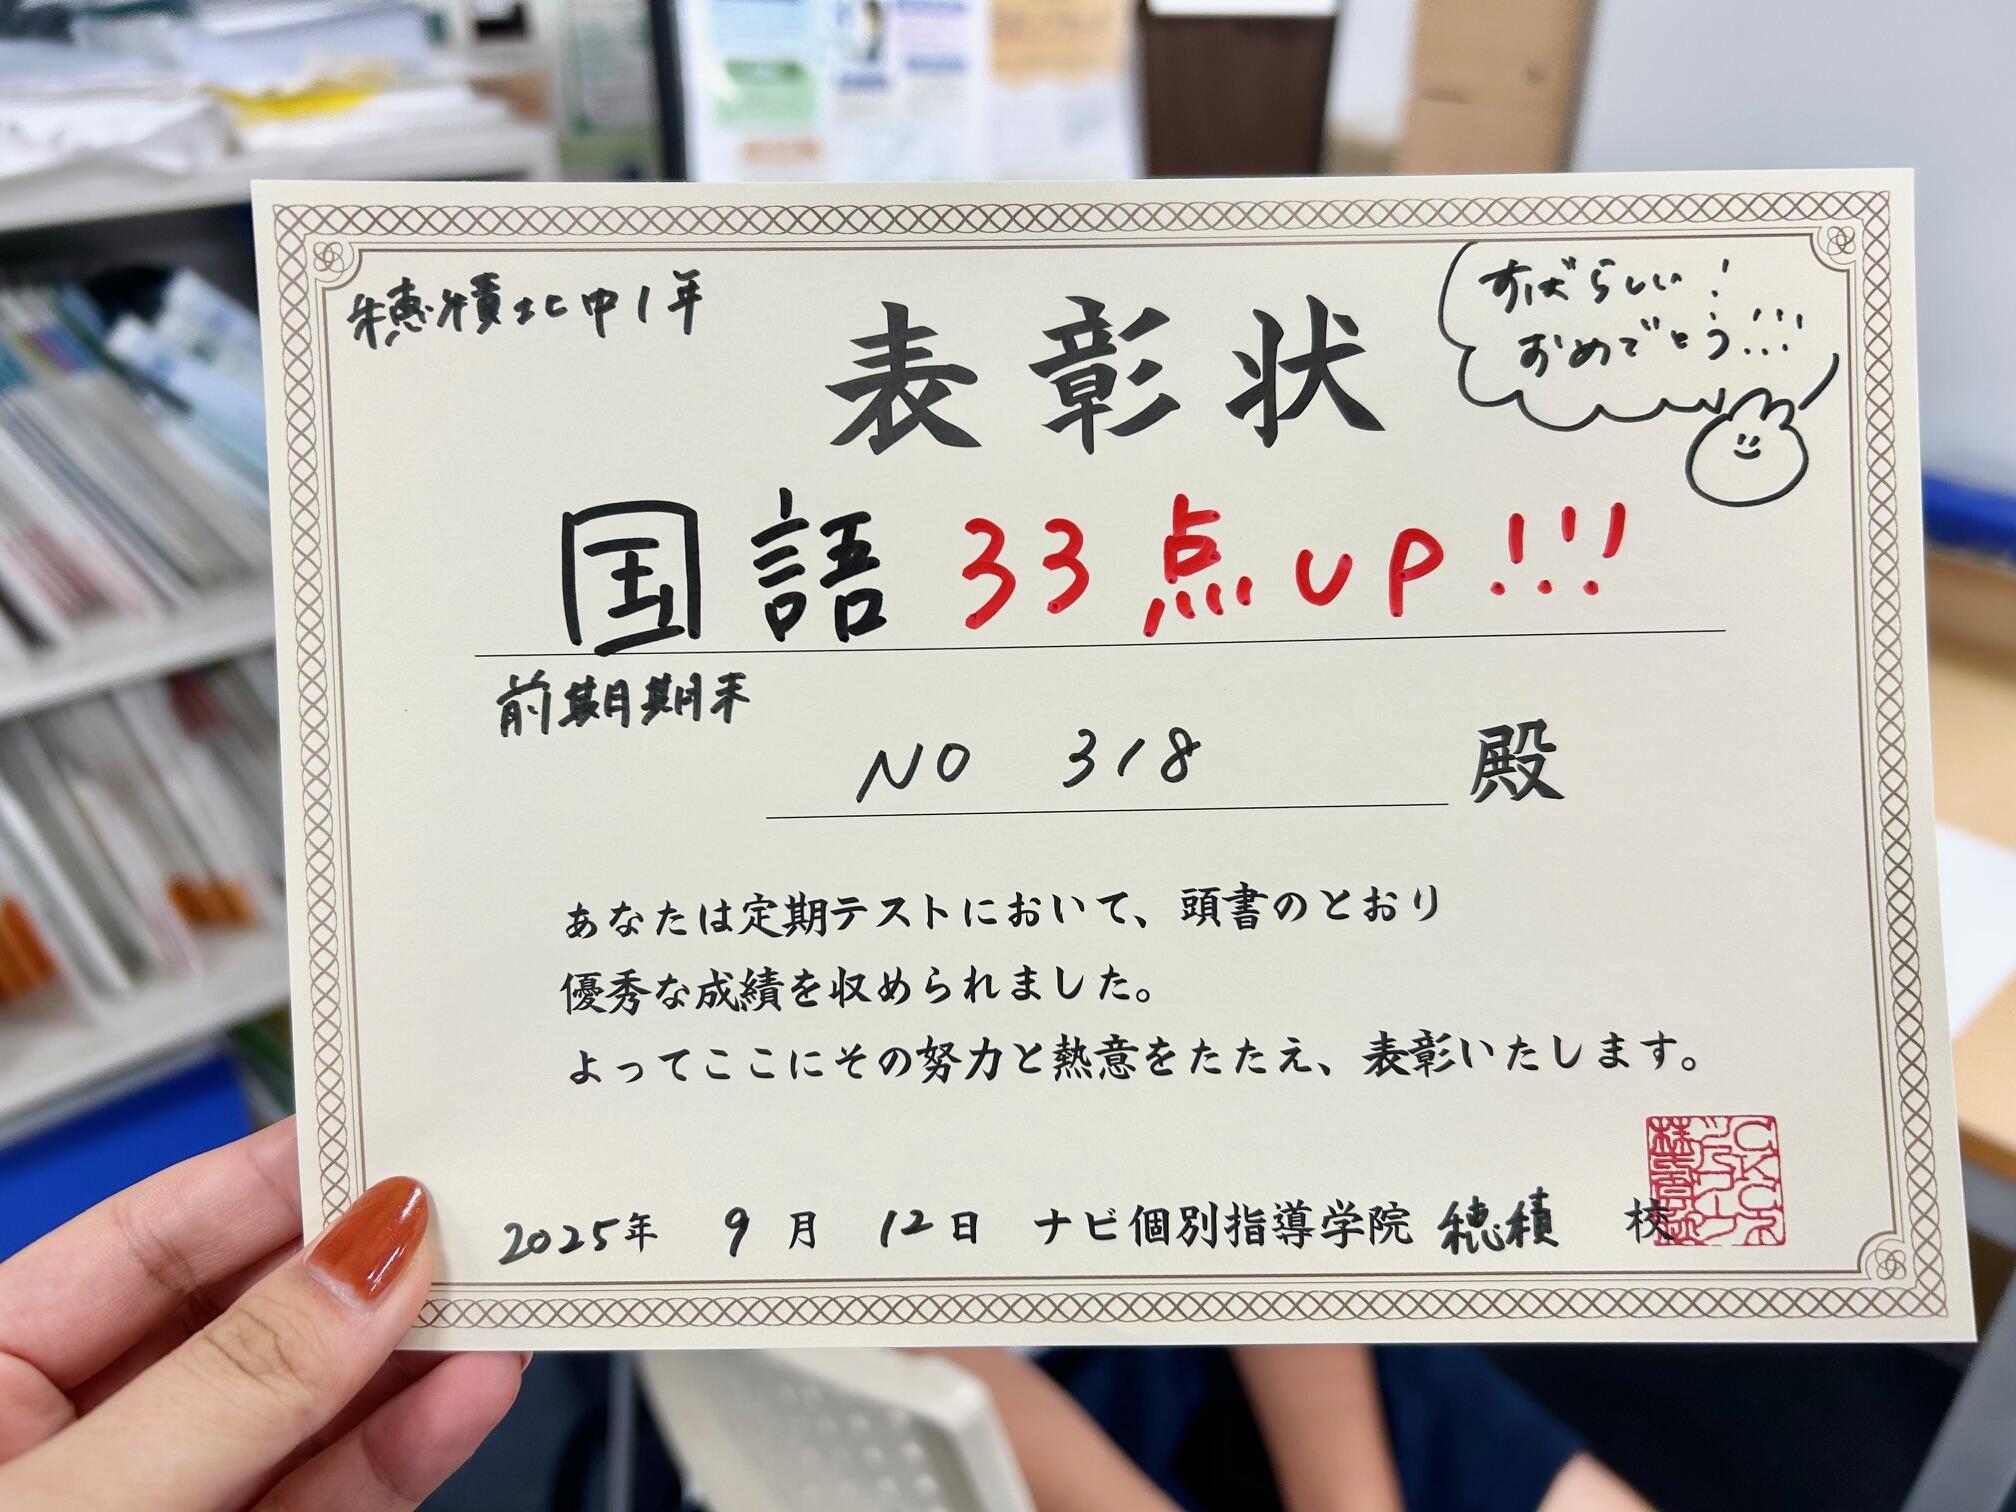 穂積北中1年
すばらしい!
おめでとう!!!
表彰状
国語 33点UP!!!
前期期末
NO 318 殿
あなたは定期テストにおいて、頭書のとおり
優秀な成績を収められました。
よってここにその努力と熱意をたたえ、表彰いたします。
2025年 9月 12日 ナビ個別指導学院 穂積 校